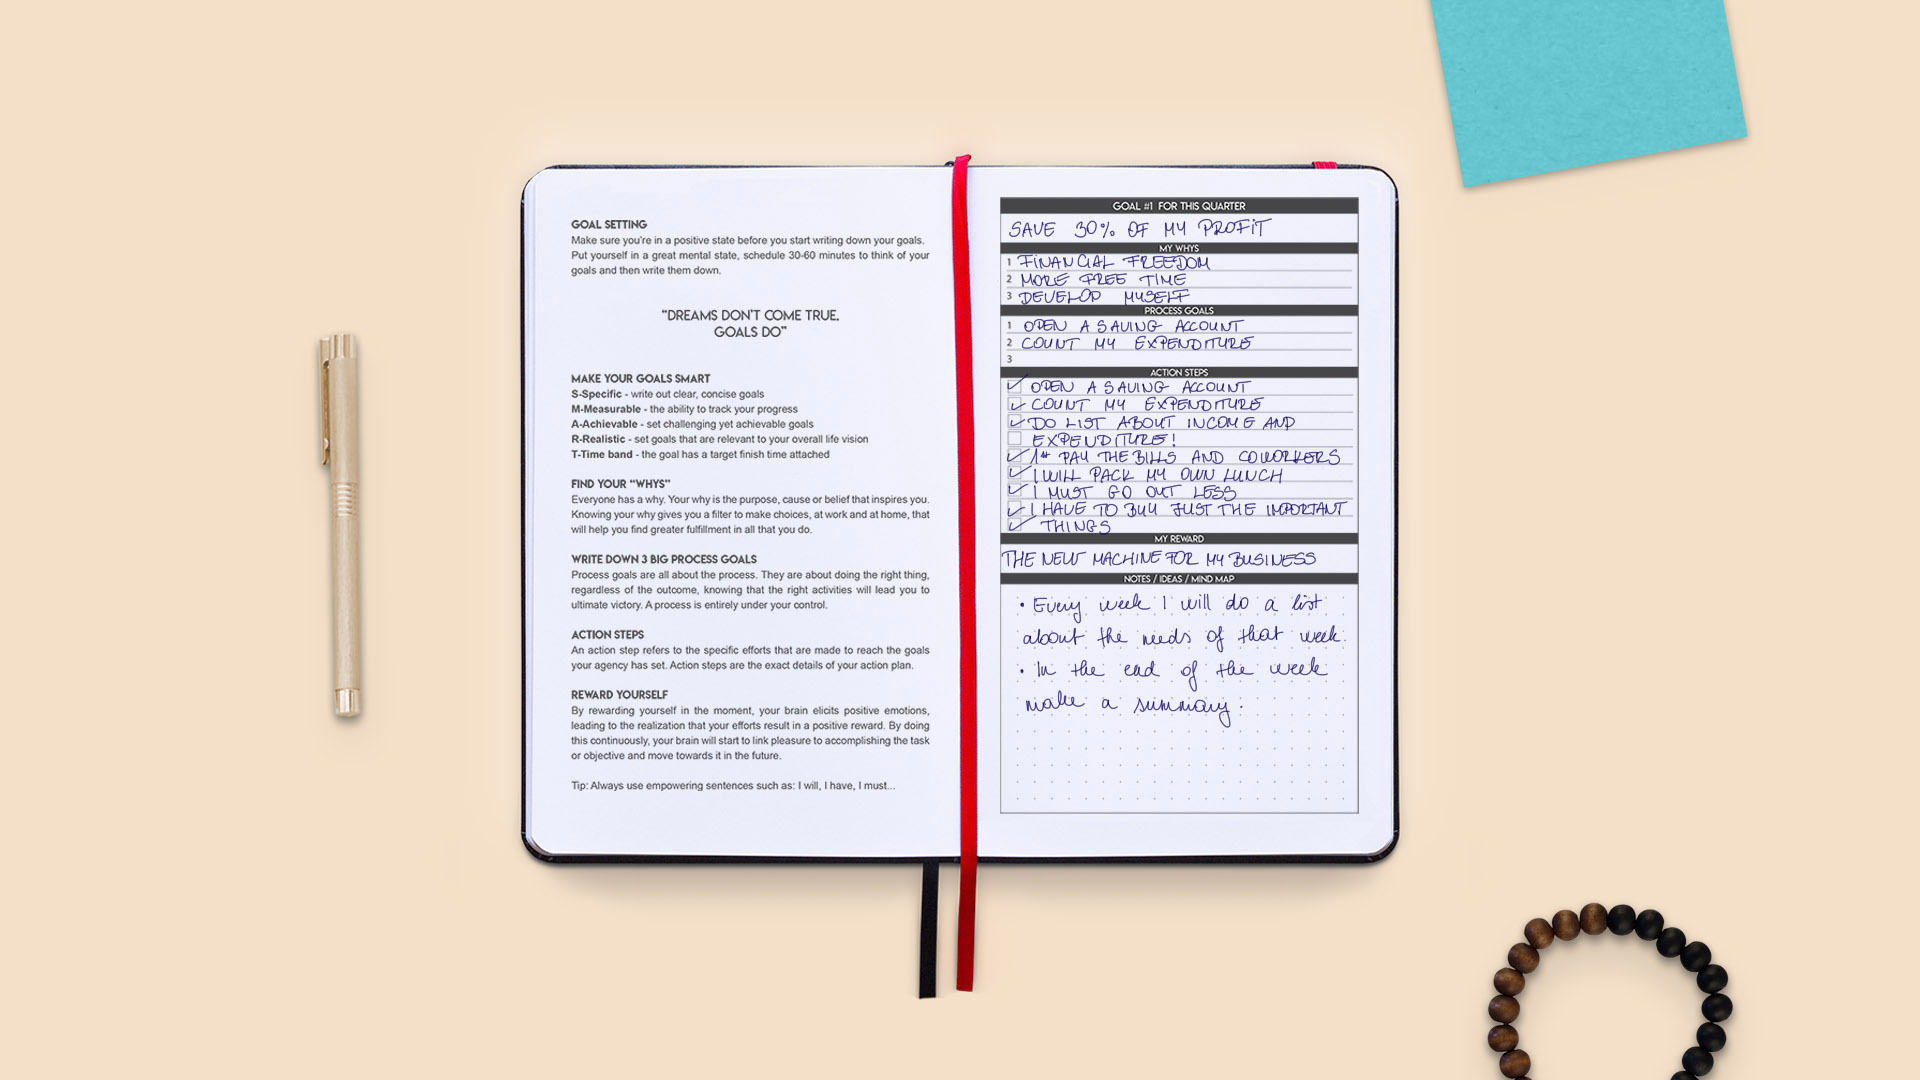 GOAL SETTING
Make sure you're in a positive state before you start writing down your goals.
Put yourself in a great mental state, schedule 30-60 minutes to think of your
goals and then write them down.
"DREAMS DON'T COME TRUE,
GOALS DO"
MAKE YOUR GOALS SMART
S-Specific - write out clear, concise goals
M-Measurable - the ability to track your progress
A-Achievable - set challenging yet achievable goals
R-Realistic - set goals that are relevant to your overall life vision
T-Time band - the goal has a target finish time attached
FIND YOUR "WHYS"
Everyone has a why. Your why is the purpose, cause or belief that inspires you.
Knowing your why gives you a filter to make choices, at work and at home, that
will help you find greater fulfillment in all that you do.
WRITE DOWN 3 BIG PROCESS GOALS
Process goals are all about the process. They are about doing the right thing,
regardless of the outcome, knowing that the right activities will lead you to
ultimate victory. A process is entirely under your control.
ACTION STEPS
An action step refers to the specific efforts that are made to reach the goals
your agency has set. Action steps are the exact details of your action plan.
REWARD YOURSELF
By rewarding yourself in the moment, your brain elicits positive emotions,
leading to the realization that your efforts result in a positive reward. By doing
this continuously, your brain will start to link pleasure to accomplishing the task
or objective and move towards it in the future.
Tip: Always use empowering sentences such as: I will, I have, I must...
GOAL #1 FOR THIS QUARTER
SAVE 30% OF MY PROFIT
MY WHYS
1 FINANCIAL FREEDOM
2 MORE FREE TIME
3 DEVELOP MYSELF
PROCESS GOALS
1 OPEN A SAVING ACCOUNT
2 COUNT MY EXPENDITURE
3
ACTION STEPS
OPEN A SAVING ACCOUNT
COUNT MY EXPENDITURE
DO LIST ABOUT INCOME AND
EXPENDITURE!
1st PAY THE BILLS AND COWORKERS
I WILL PACK MY OWN LUNCH
I MUST GO OUT LESS
I HAVE TO BUY JUST THE IMPORTANT
THINGS
MY REWARD
THE NEW MACHINE FOR MY BUSINESS
NOTES / IDEAS / MIND MAP
• Every week I will do a list
about the needs of that week.
• In the end of the week
make a summary.